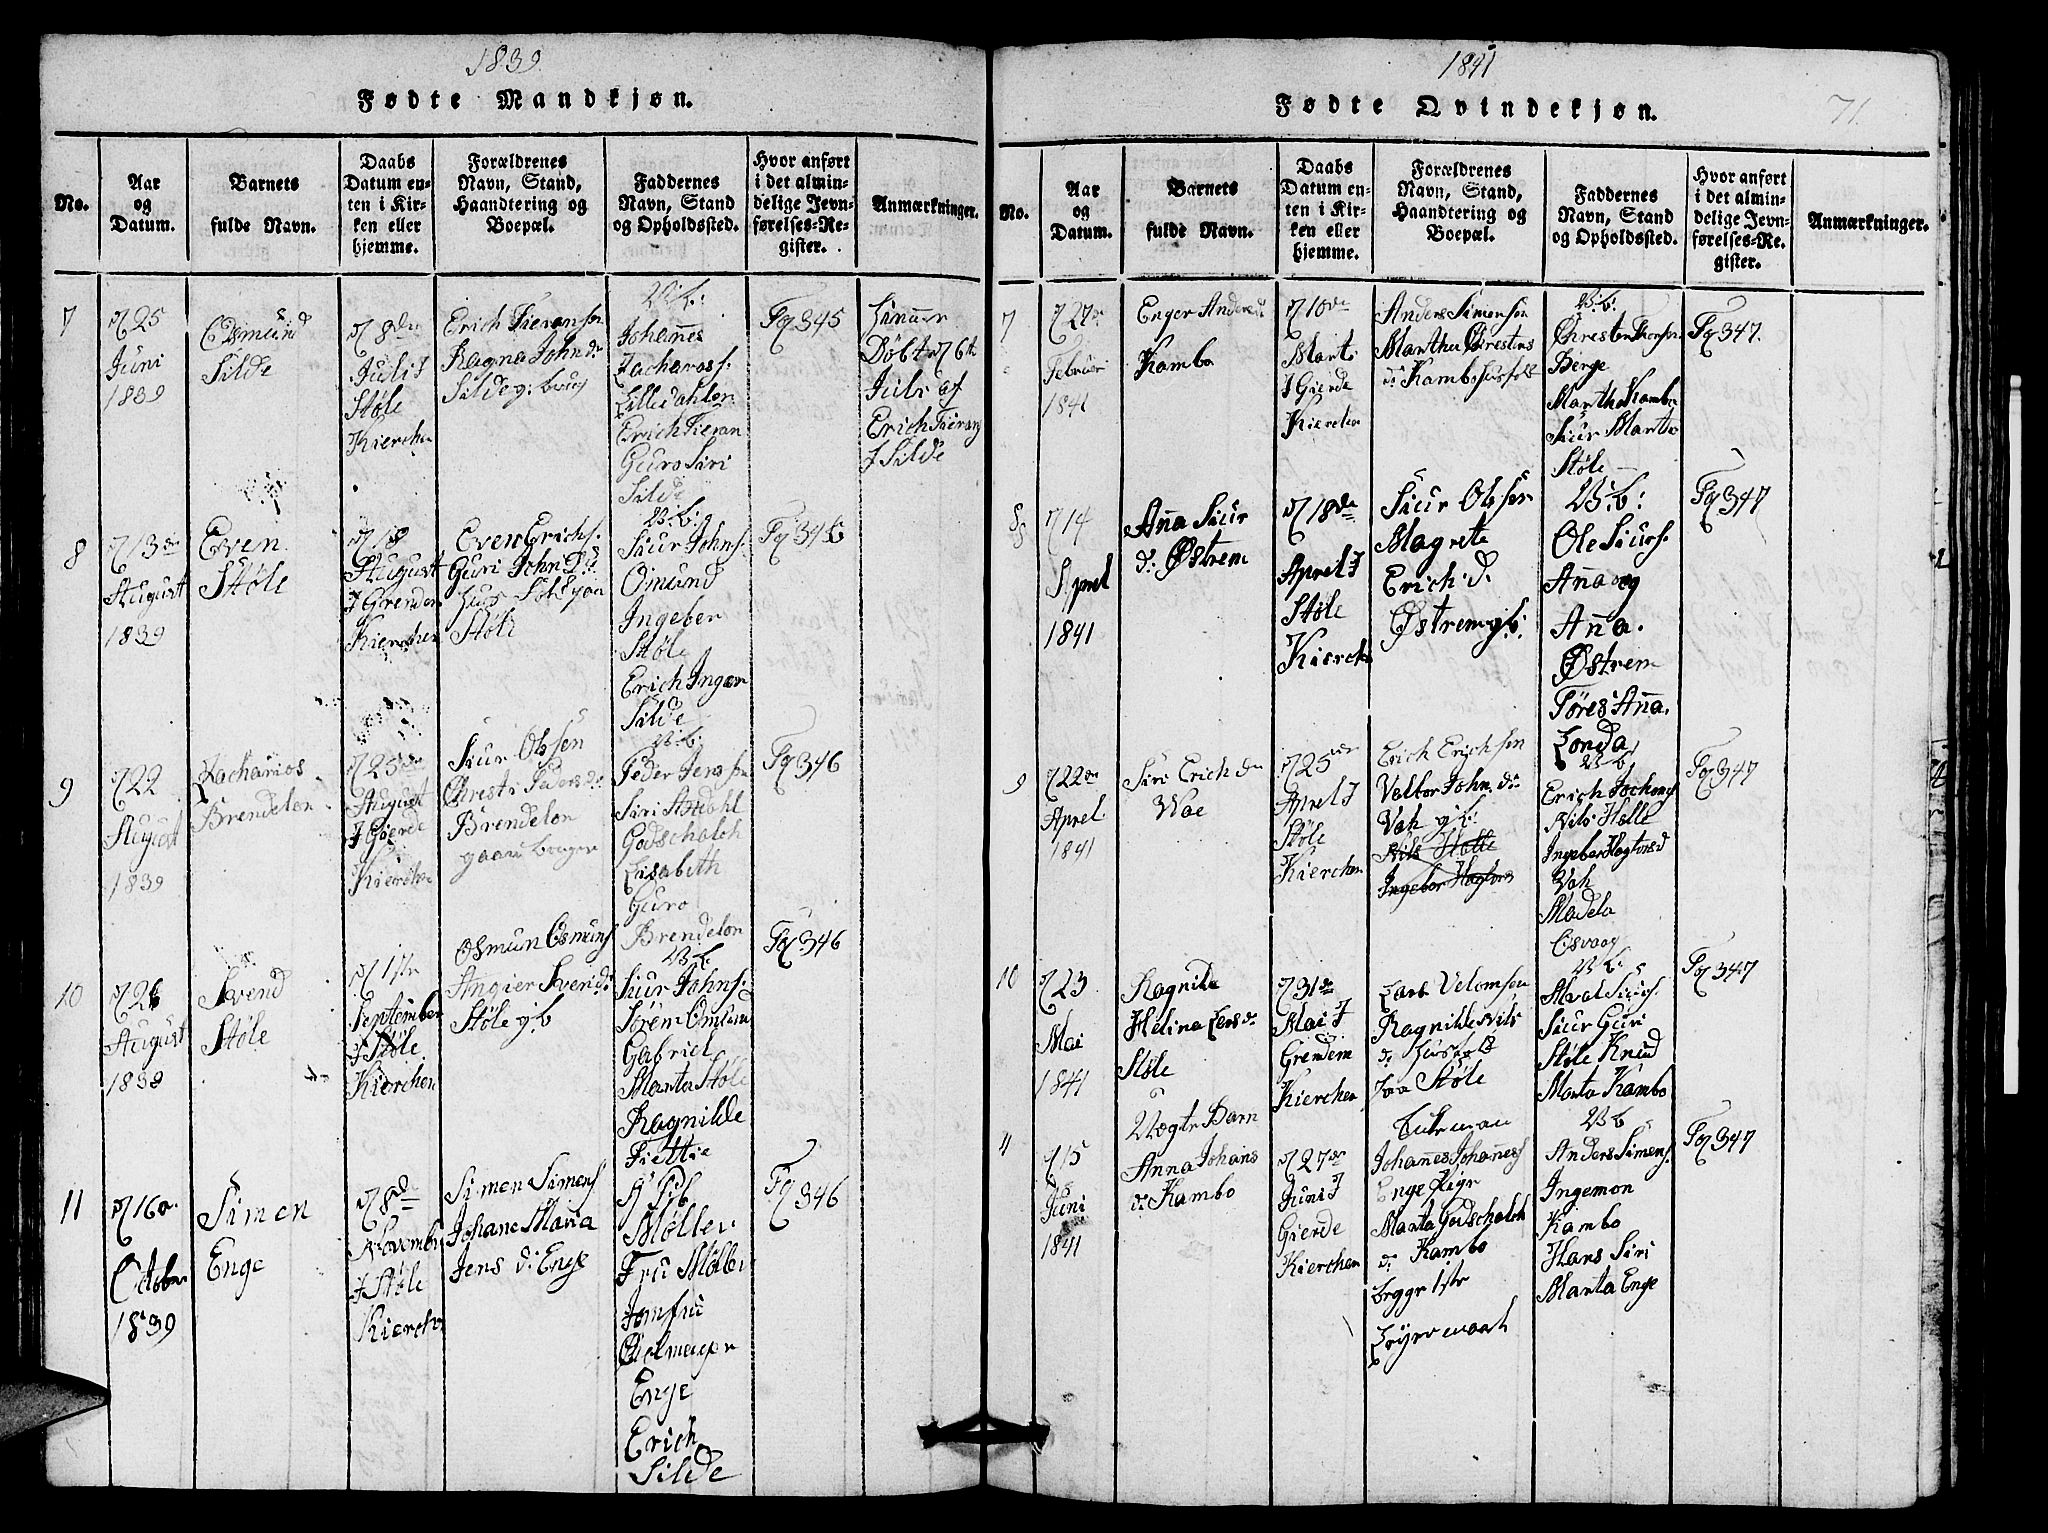 1839
Fødte Mandkjøn.
No.
Aar
og
Datum.
Barnets
fulde Navn.
Daabs
Datum en-
ten i Kir-
ken eller
hjemme.
Forældrenes
Navn, Stand,
Haandtering og
Boepæl.
Faddernes
Navn, Stand
og Opholdssted.
Hvor anført
i det almin-
delige Jevn-
førelses-Re-
gister.
Anmærkninger.
7
25
Juni
1839
Silde
8de
Juli J
Støle
Kierchen
Erich
Ragna John d:
Silde
Johannes
Zacharas s.
Lilledahlen
Erich
Guro Siri
Silde
345
Døbt 6te
Juli af
Erich
J Silde
8
13
August
1839
Even
Støle
18
August
J Grenden
Kierchen
Even Erichs.
Guri John D:
Støle
Siur Johns.
Omund
Ingeber
Støle
Erich Inger
Silde
346
9
22
August
1839
Zacharios
Brendelon
25
August
J Gierde
Kierchen
Siur Olsen
Christi Peders d:
Brendelon
gaard bruger
Peder Jensson
Siri
Godschalch
Lisabeth
Guro
Brendelon
346
10
26
August
1839
Svend
Støle
1ste
September
J Støle
Kierchen
Osmun Osmuns
Angier Svend d:
Støle g: b
Siur Johns.
Sørem Omund
Gabriel
Marta Støle
Ragnilde
346
11
16
October
1839
Simen
Enge
8de
November
J Støle
Kierchen
Simen Simens
Johane Maria
Jens d: Enge
Møller
Fru Møller
Jomfru
Enge
Erich
Silde
346
1841
Fødte Qvindekjøn.
71
No.
Aar
og
Datum.
Barnets
fulde Navn.
Daabs
Datum en-
ten i Kir-
ken eller
hjemme.
Forældrenes
Navn, Stand,
Haandtering og
Boepæl.
Faddernes
Navn, Stand
og Opholdssted.
Hvor anført
i det almin-
delige Jevn-
førelses-Re-
gister.
Anmærkninger.
7
27
Februari
1841
Enger Anders d
Kambo
10de
Marts
J Gierde
Kierchen
Anders Simenson
Martha Christens
d: Kambo
Christen
Berge
Martha Kambo
Siur Marta
Støle
347.
8
14
Aprel
1841
Anna Siur
d: Østrem
18de
Aprel J
Støle
Kierchen
Siur Olsen
Magrete
Erich: d:
Østrem g: b:
Ole Siurs.
Anna og
Anna.
Østrem
Tøres Anna.
Londa
347
9
22
Aprel.
1841
Siri Erich d:
Wae
25
Aprel J
Støle
Kierchen
Erich Erichsen
Velbor John. d:
Vah g: b:
Nils Hølle
Ingebor Hagtors
Erich Jochems
Nils Hølle
Ingebor Hagtors d
Vah
Madela
Osvaag
347
10
23
Mai
1841
Ragnilde
Helina Lars d:
Støle
31
Mai J
Grendem
Kierchen
Lars Velomsen
Ragnilde Nils
d:
paa Støle
Siurs.
Siur Guri
Støle Knud
Marta Kambo
347
11
15
Juni
1841
Uægte Barn
Anna Johans
d: Kambo
27de
Juni J
Gierde
Kierchen
Johannes Johannes
Enge
Marta Godschalch
d: Kambo
begge 1ste
Løyermaal
Anders Simens.
Ingemon
Kambo
Hans Siri
Marta Enge
347